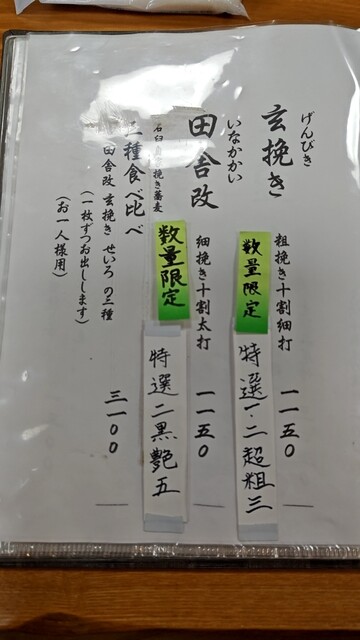 げんびき
玄挽き
粗挽き十割細打 一一五〇
数量限定
特選一・二超粗三
いなかかい
田舎改
細挽き十割太打 一一五〇
石臼
挽き蕎麦
数量限定
特選二黒艶五
三種食べ比べ
田舎改 玄挽き せいろ の三種
(一枚ずつお出しします)
(お一人様用)
三一〇〇